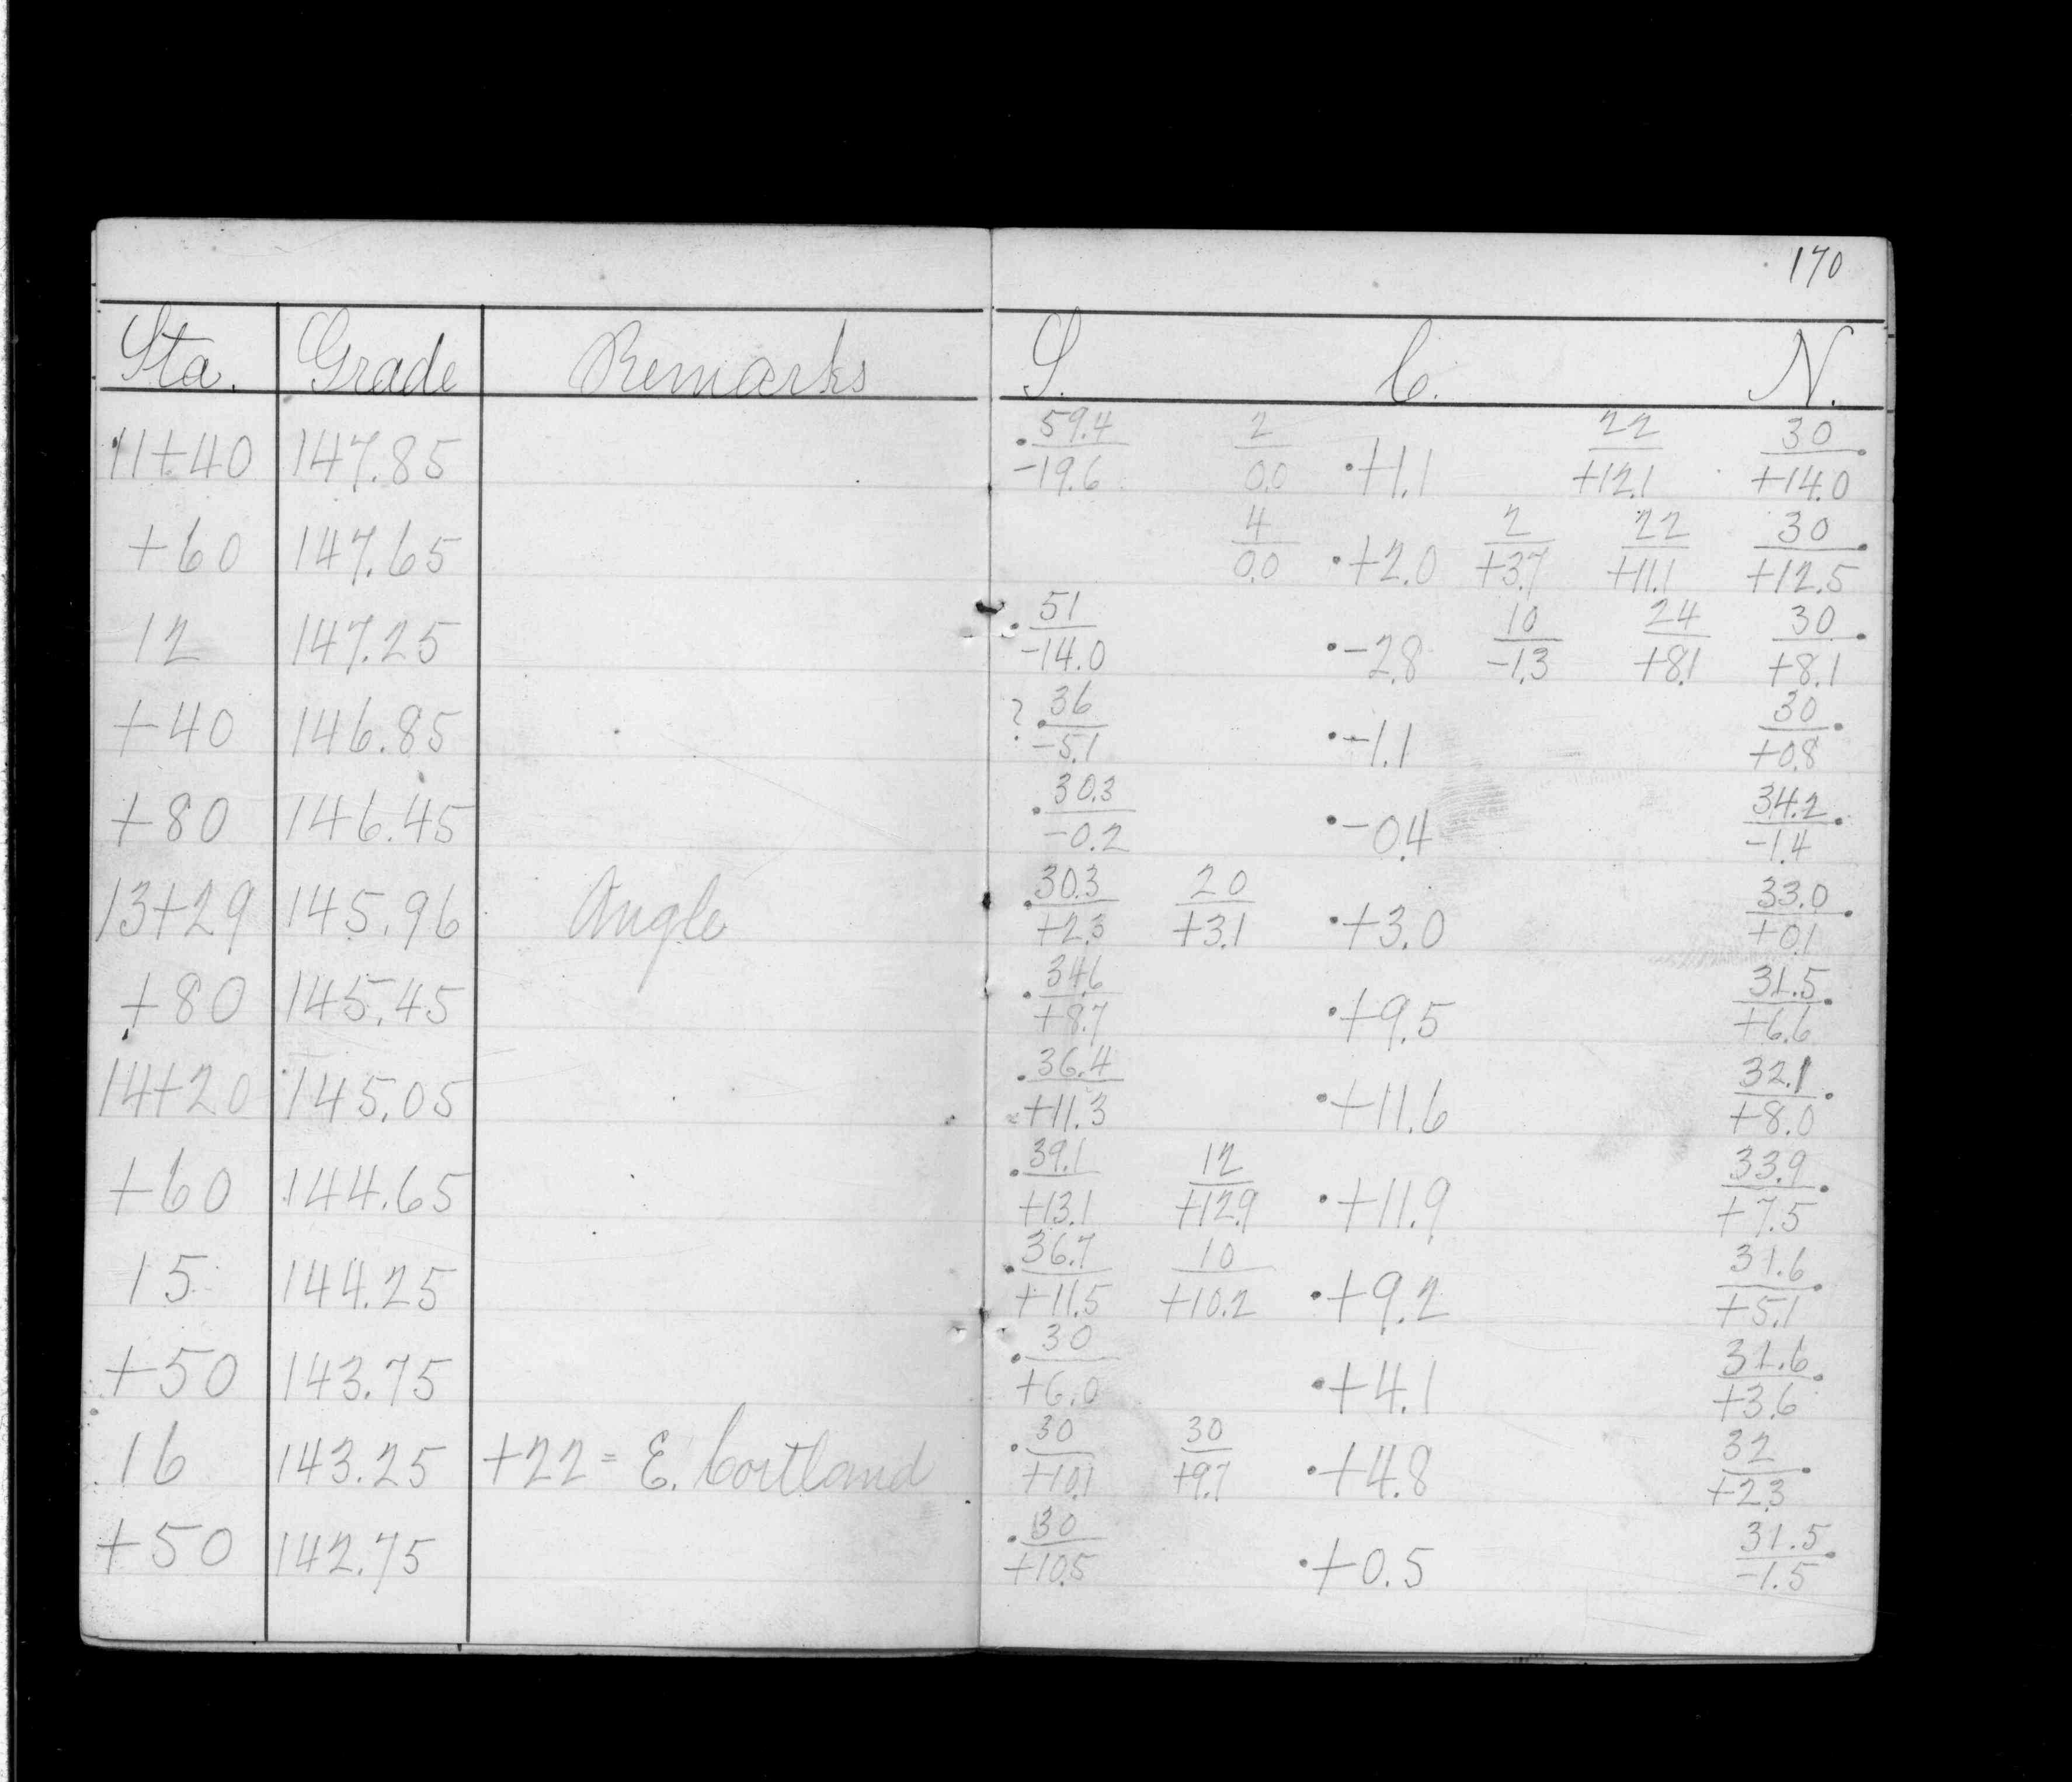 170
Sta. Grade Remarks S. C. N.
11+40 147.85 59.4/-19.6 2/0.0 +1.1 22/+12.1 30/+14.0
+60 147.65 4/0.0 +2.0 2/+3.7 22/+11.1 30/+12.5
12 147.25 51/-14.0 -2.8 10/-1.3 24/+8.1 30/+8.1
+40 146.85 ? 36/-5.1 -1.1 30/+0.8
+80 146.45 30.3/-0.2 -0.4 34.2/-1.4
13+29 145.96 Angle 30.3/+2.3 20/+3.1 +3.0 33.0/+0.1
+80 145.45 34.6/+8.7 +9.5 31.5/+6.6
14+20 145.05 36.4/+11.3 +11.6 32.1/+8.0
+60 144.65 39.1/+13.1 12/+12.9 +11.9 33.9/+7.5
15 144.25 36.7/+11.5 10/+10.2 +9.2 31.6/+5.1
+50 143.75 30/+6.0 +4.1 31.6/+3.6
16 143.25 +22 = E. Cortland 30/+10.1 30/+9.7 +4.8 32/+2.3
+50 142.75 30/+10.5 +0.5 31.5/-1.5